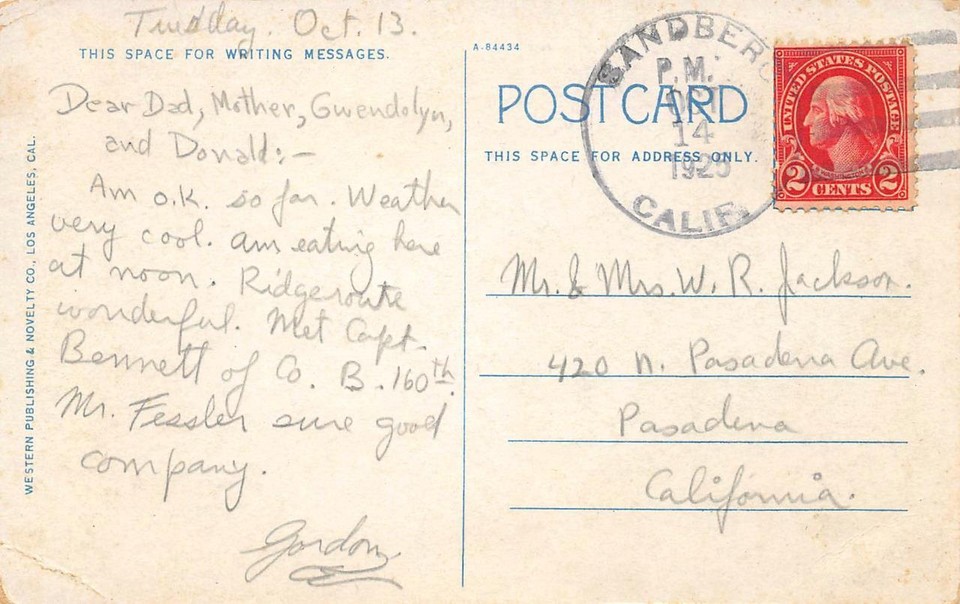 Tuesday. Oct. 13.
THIS SPACE FOR WRITING MESSAGES.
Dear Dad, Mother, Gwendolyn,
and Donald:—
Am o.k. so far. Weather
very cool. am eating here
at noon. Ridgeroute
wonderful. Met Capt.
Bennett of Co. B. 160th.
Mr. Fessler sure good
company.
Gordon
WESTERN PUBLISHING & NOVELTY CO., LOS ANGELES, CAL.
A-84434
POST CARD
THIS SPACE FOR ADDRESS ONLY.
SANDBERG
P.M.
OCT
14
1925
CALIF.
UNITED STATES POSTAGE
2 CENTS 2
Mr. & Mrs. W. R. Jackson.
420 N. Pasadena Ave.
Pasadena
California.